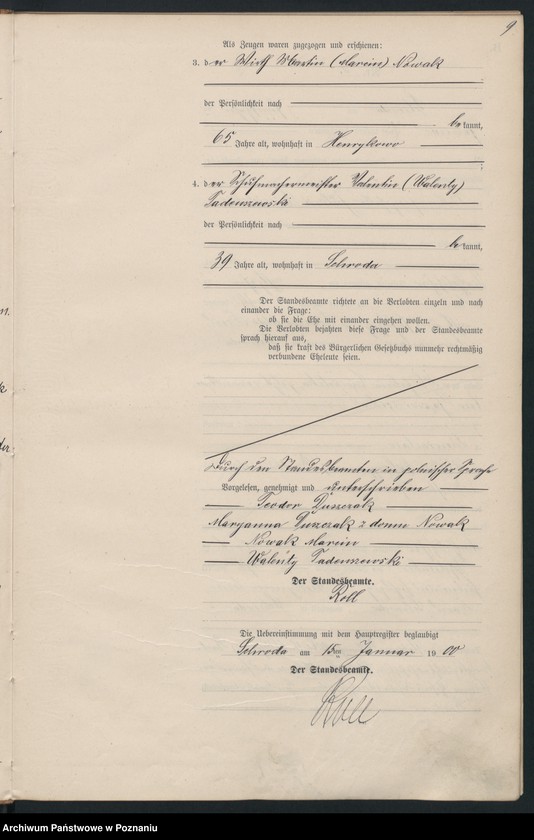 9
Als Zeugen waren zugezogen und erschienen:
3. der Wirth Martin (Marcin) Nowak
der Persönlichkeit nach
bekannt,
65 Jahre alt, wohnhaft in Henrykowo
4. der Schuhmachermeister Valentin (Walenty)
Tadeuszewski
der Persönlichkeit nach
bekannt,
39 Jahre alt, wohnhaft in Schroda
Der Standesbeamte richtete an die Verlobten einzeln und nach
einander die Frage:
ob sie die Ehe mit einander eingehen wollen.
Die Verlobten bejahten diese Frage und der Standesbeamte
sprach hierauf aus,
daß sie kraft des Bürgerlichen Gesetzbuchs nunmehr rechtmäßig
verbundene Eheleute seien.
Durch den Standesbeamten in polnischer Sprache
Vorgelesen, genehmigt und unterschrieben
Teodor Duszczak
Maryanna Duszczak z domu Nowak
Nowak Marcin
Walenty Tadeuszewski
Der Standesbeamte.
Roll
Die Uebereinstimmung mit dem Hauptregister beglaubigt
Schroda am 15ten Januar 1900
Der Standesbeamte.
Roll
Archiwum Państwowe w Poznaniu